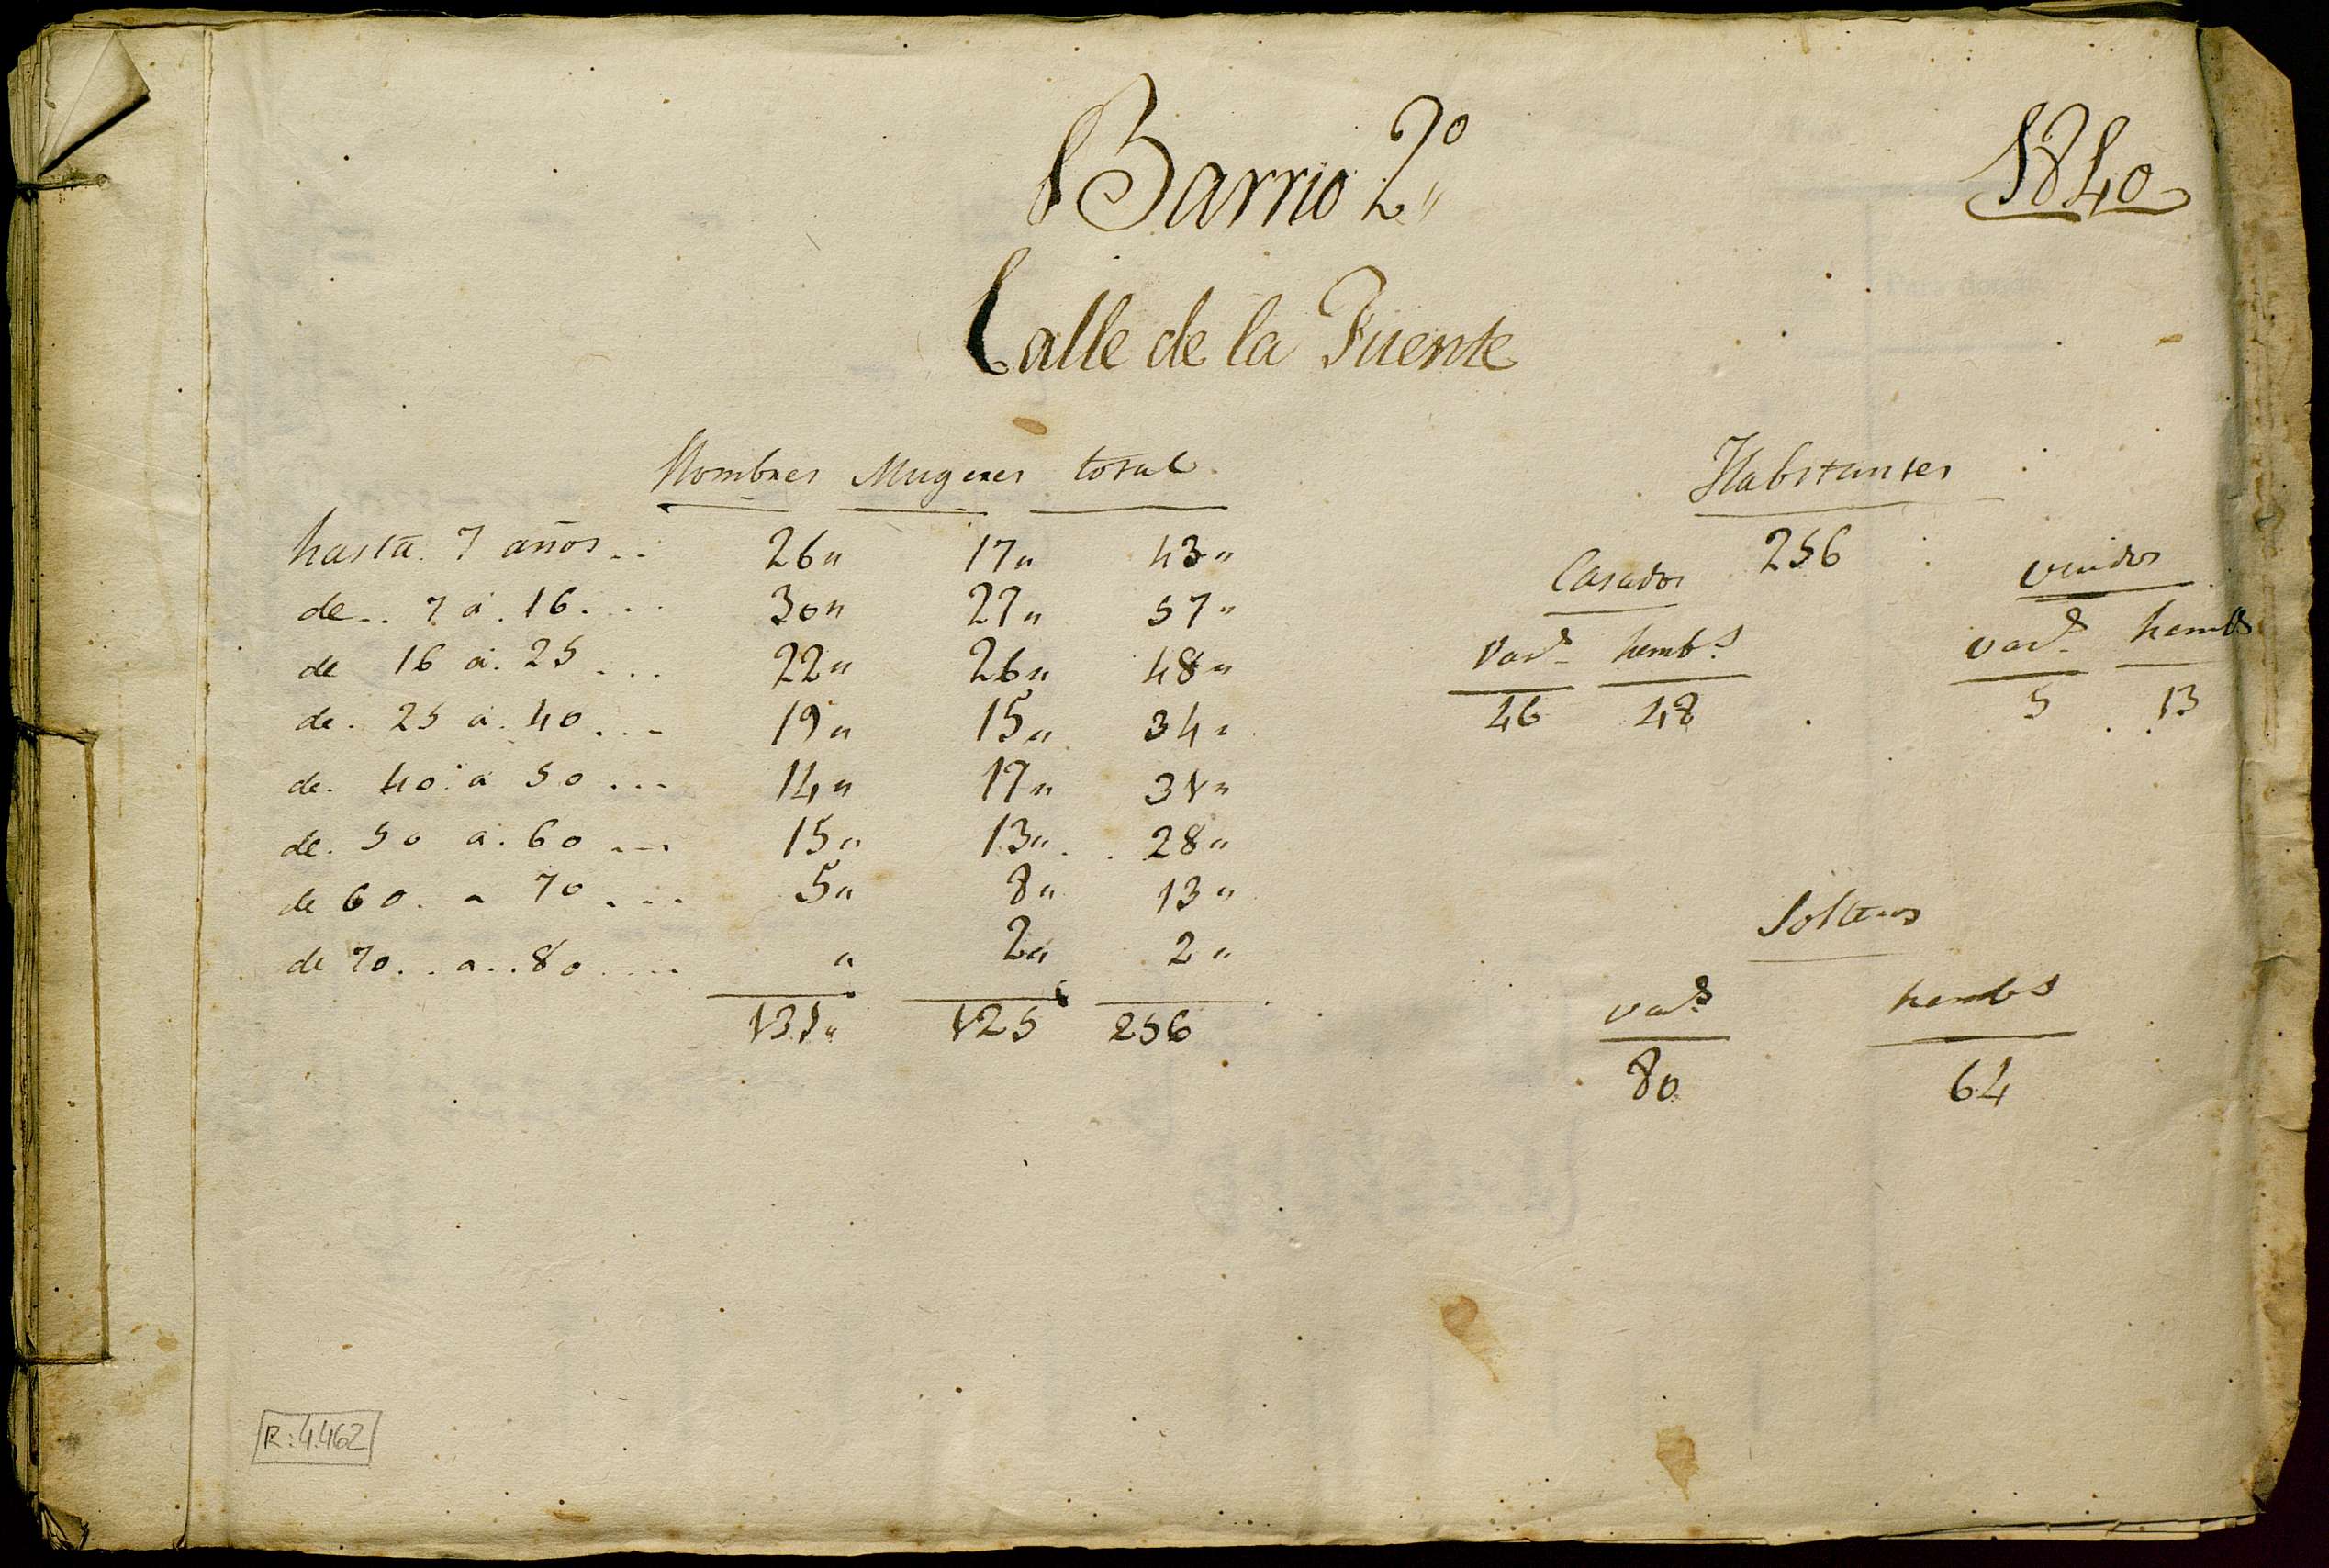 Barrio 2º„
1840
Calle de la Fuente
Hombres Mugeres total
hasta 7 años.. 26„ 17„ 43„
de.. 7 a. 16.... 30„ 27„ 57„
de 16 a. 25... 22„ 26„ 48„
de. 25 a. 40... 19„ 15„ 34„
de. 40. a 50... 14„ 17„ 31„
de. 50 a. 60... 15„ 13„ 28„
de 60. a 70.... 5„ 8„ 13„
de 70.. a.. 80.... „ 2„ 2„
131„ 125 256
Habitantes
256
Casados
Vars hembs
46 48
viudos
vars hembs
5 13
Solteros
vars hembs
80 64
R: 4.462